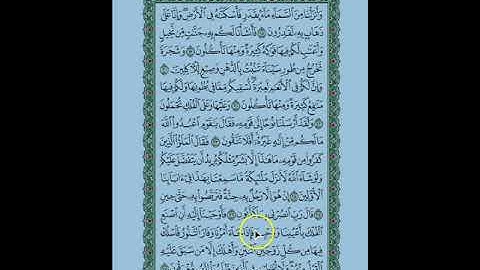 وَأَنزَلْنَا مِنَ ٱلسَّمَآءِ مَآءًۢ بِقَدَرٍ فَأَسْكَنَّٰهُ فِى ٱلْأَرْضِ وَإِنَّا عَلَىٰ
ذَهَابٍۭ بِهِۦ لَقَٰدِرُونَ ١٨ فَأَنشَأْنَا لَكُم بِهِۦ جَنَّٰتٍ مِّن نَّخِيلٍ
وَأَعْنَٰبٍ لَّكُمْ فِيهَا فَوَٰكِهُ كَثِيرَةٌ وَمِنْهَا تَأْكُلُونَ ١٩ وَشَجَرَةً
تَخْرُجُ مِن طُورِ سَيْنَآءَ تَنۢبُتُ بِٱلدُّهْنِ وَصِبْغٍ لِّلْءَاكِلِينَ ٢٠
وَإِنَّ لَكُمْ فِى ٱلْأَنْعَٰمِ لَعِبْرَةً نُّسْقِيكُم مِّمَّا فِى بُطُونِهَا وَلَكُمْ فِيهَا
مَنَٰفِعُ كَثِيرَةٌ وَمِنْهَا تَأْكُلُونَ ٢١ وَعَلَيْهَا وَعَلَى ٱلْفُلْكِ تُحْمَلُونَ
٢٢ وَلَقَدْ أَرْسَلْنَا نُوحًا إِلَىٰ قَوْمِهِۦ فَقَالَ يَٰقَوْمِ ٱعْبُدُوا۟ ٱللَّهَ
مَا لَكُم مِّنْ إِلَٰهٍ غَيْرُهُۥٓ أَفَلَا تَتَّقُونَ ٢٣ فَقَالَ ٱلْمَلَؤُا۟ ٱلَّذِينَ
كَفَرُوا۟ مِن قَوْمِهِۦ مَا هَٰذَآ إِلَّا بَشَرٌ مِّثْلُكُمْ يُرِيدُ أَن يَتَفَضَّلَ عَلَيْكُمْ
وَلَوْ شَآءَ ٱللَّهُ لَأَنزَلَ مَلَٰٓئِكَةً مَّا سَمِعْنَا بِهَٰذَا فِىٓ ءَابَآئِنَا
ٱلْأَوَّلِينَ ٢٤ إِنْ هُوَ إِلَّا رَجُلٌۢ بِهِۦ جِنَّةٌ فَتَرَبَّصُوا۟ بِهِۦ حَتَّىٰ حِينٍ
٢٥ قَالَ رَبِّ ٱنصُرْنِى بِمَا كَذَّبُونِ ٢٦ فَأَوْحَيْنَآ إِلَيْهِ أَنِ ٱصْنَعِ
ٱلْفُلْكَ بِأَعْيُنِنَا وَوَحْيِنَا فَإِذَا جَآءَ أَمْرُنَا وَفَارَ ٱلتَّنُّورُ فَٱسْلُكْ
فِيهَا مِن كُلٍّ زَوْجَيْنِ ٱثْنَيْنِ وَأَهْلَكَ إِلَّا مَن سَبَقَ عَلَيْهِ